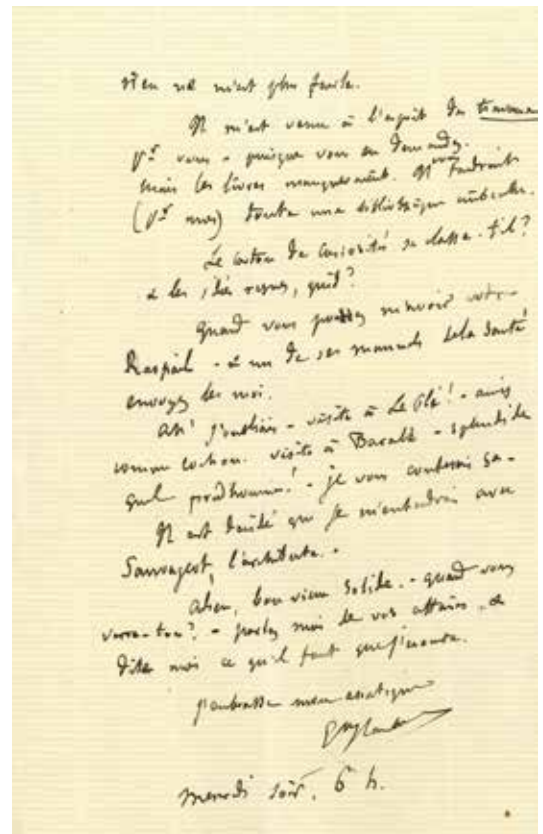 rien ne m'est plus facile.
Il m'est venu à l'esprit des travaux
pr vous - puisque vous en demandez.
mais les livres manqueraient. Il vous faudrait
(pr moi) toute une bibliothèque
Le carton de curiosités se classe-t-il?
& les idées reçues, quid?
Quand vous pourrez m'envoyer votre
Raspail - & un de ses manuels de la santé
envoyez les moi.
Ah! j'oubliais - visite à Le Plé! -
comme cochon. visite à Baraldé - splendide
quel prudhomme! - je vous conterai ça -
Il est décidé que je m'entendrai avec
Sauvageot, l'architecte. -
Adieu, bon vieux solide. - quand vous
verra-t-on? - parlez moi de vos affaires, &
dites moi ce qu'il faut que j'
j'embrasse mon asiatique
GveFlaubert
mercredi soir, 6 h.